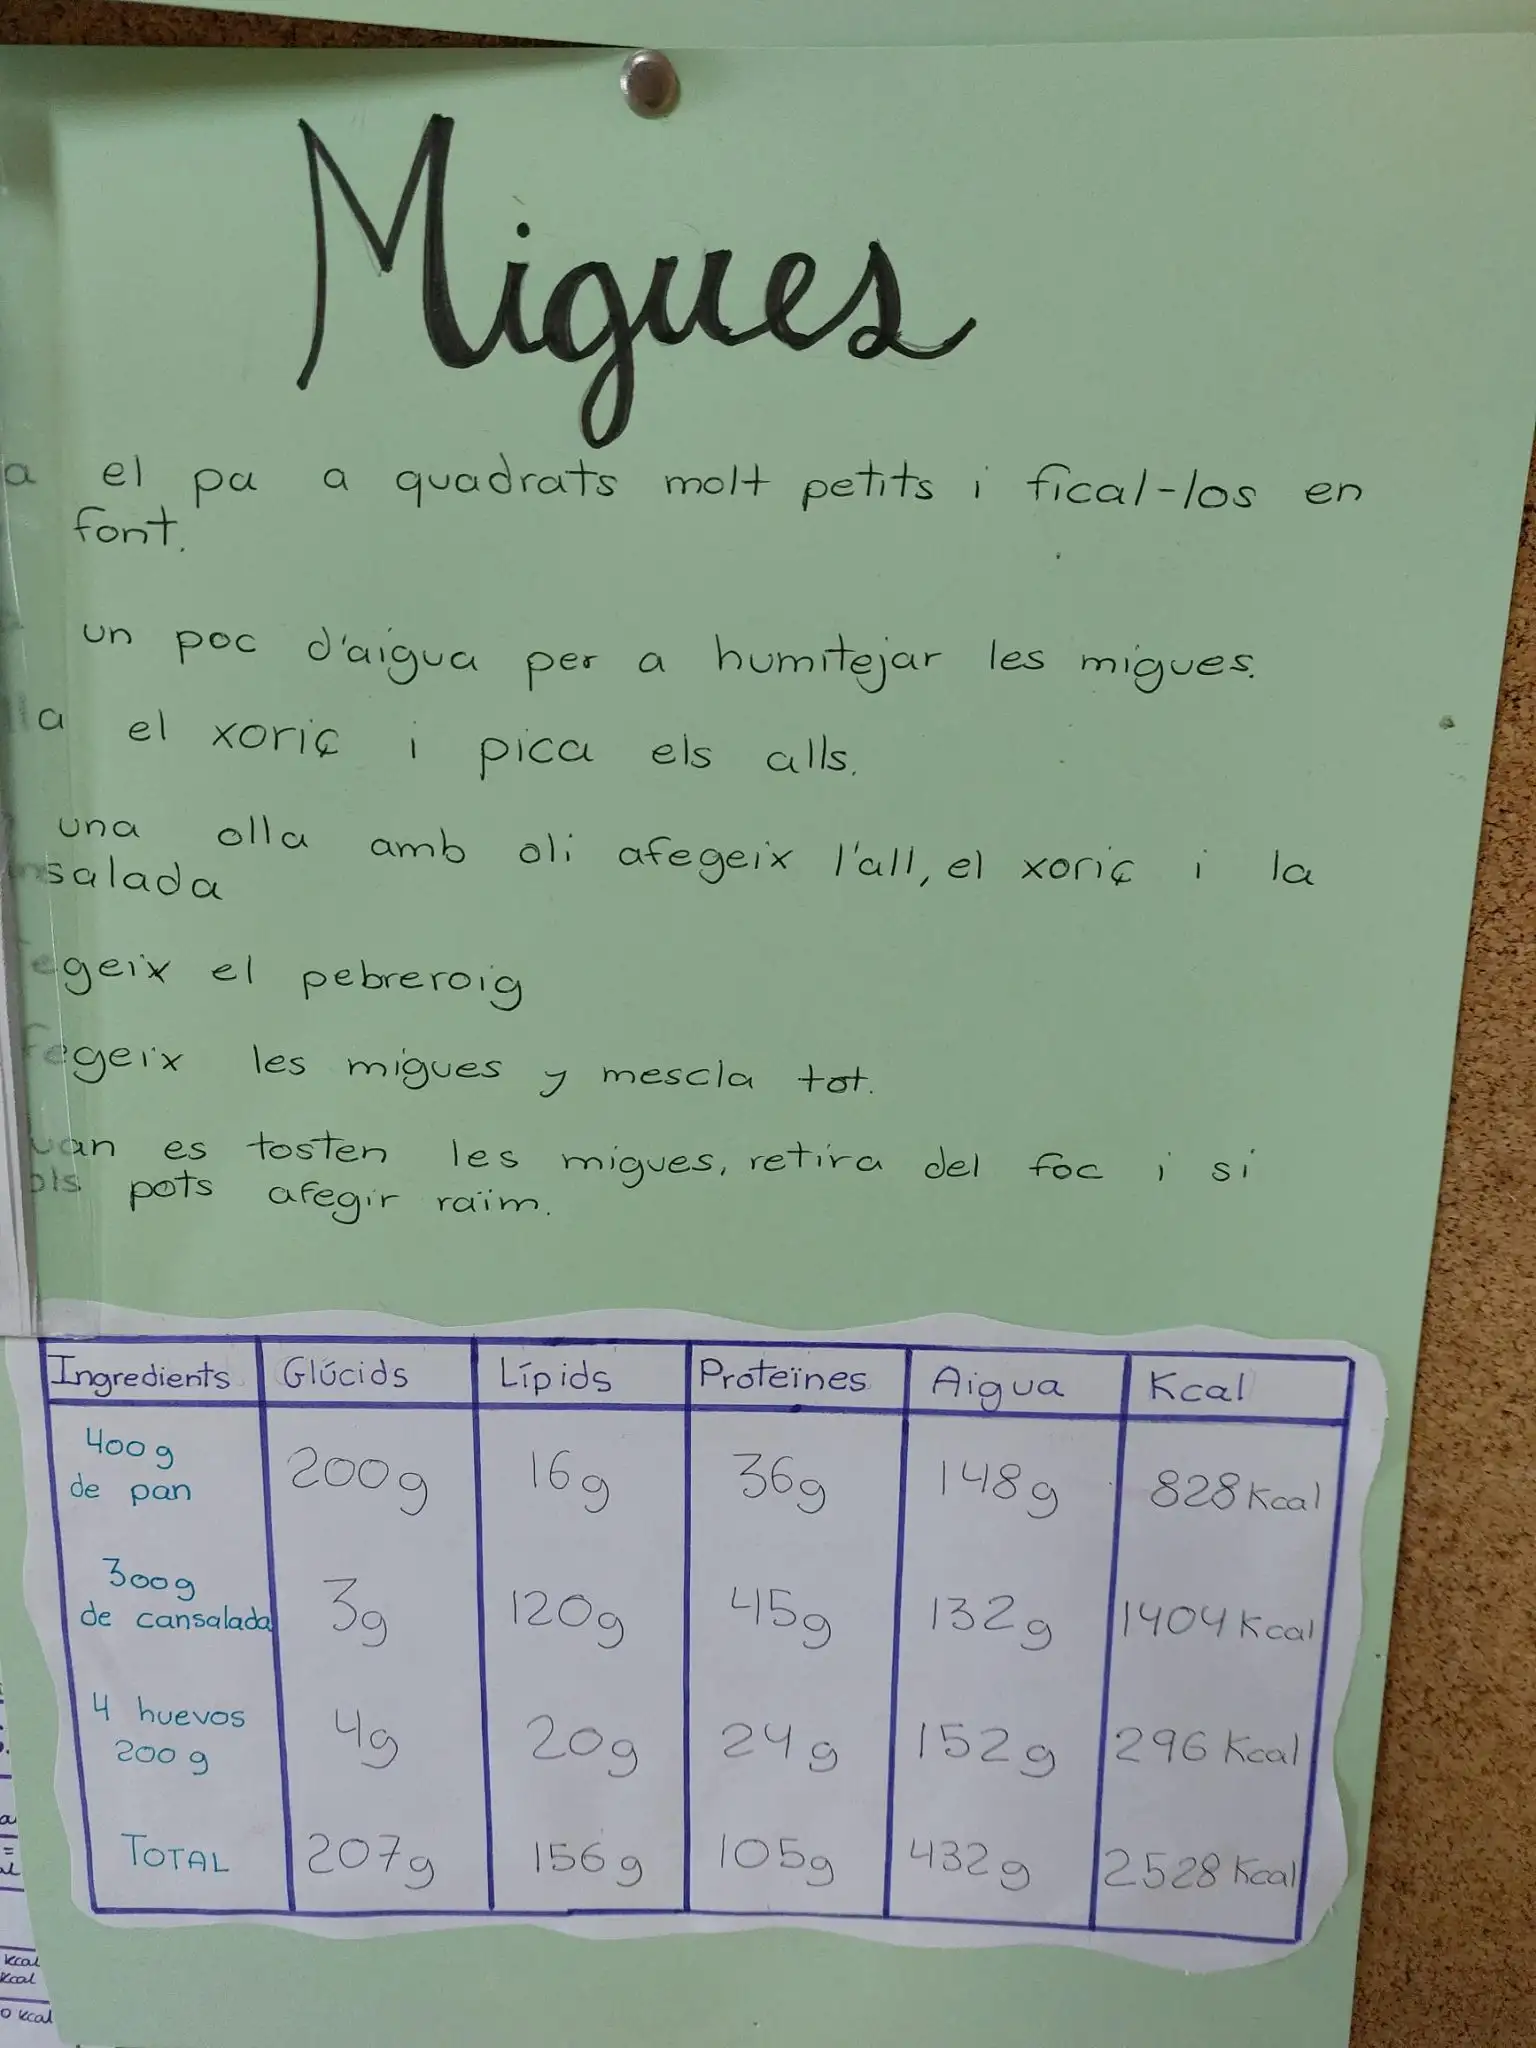 Migues
a el pa a quadrats molt petits i fical-los en
font.
un poc d'aigua per a humitejar les migues.
la el xoriç i pica els alls.
una olla amb oli afegeix l'all, el xoriç i la
nsalada
egeix el pebreroig
fegeix les migues y mescla tot.
uan es tosten les migues, retira del foc i si
ols pots afegir raïm.
Ingredients Glúcids Lípids Proteïnes Aigua Kcal
400g
de pan 200g 16g 36g 148g 828 Kcal
300g
de cansalada 3g 120g 45g 132g 1404 Kcal
4 huevos
200 g 4g 20g 24g 152g 296 Kcal
TOTAL 207g 156g 105g 432g 2528 Kcal
Kcal
Kcal
0 Kcal